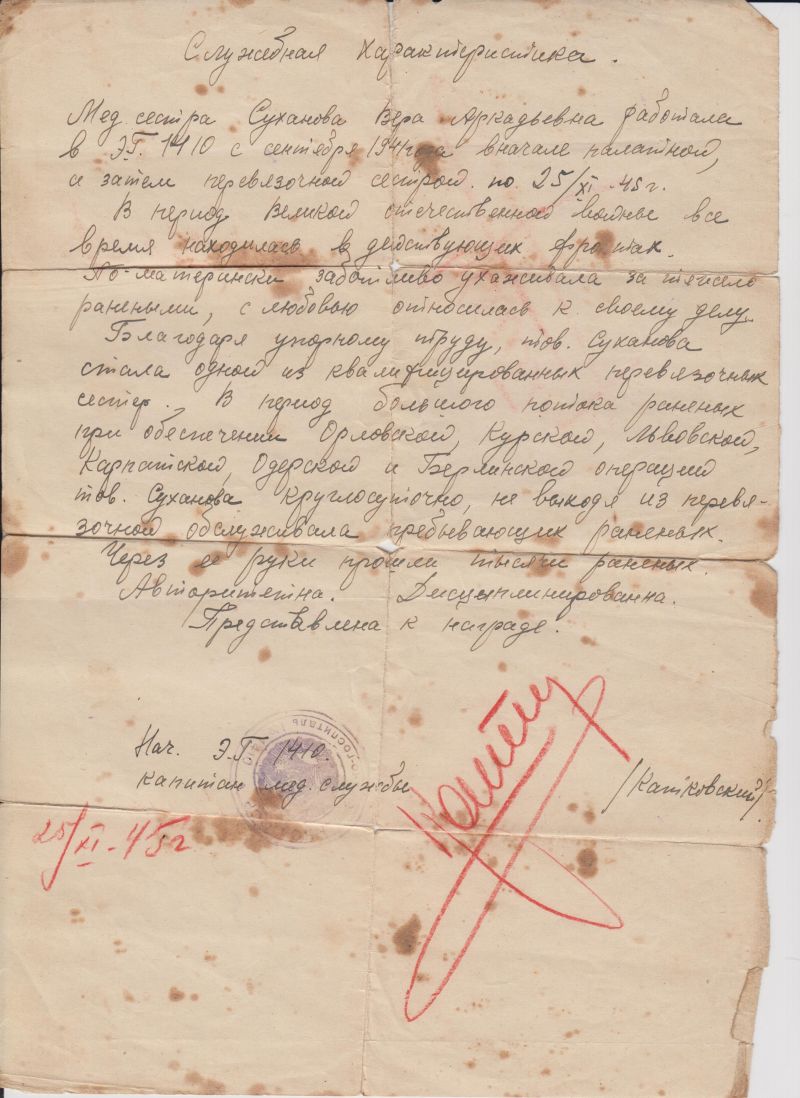 Служебная характеристика.
Мед. сестра Суханова Вера Аркадьевна работала
в ЭГ. 1410 с сентября 1941 года вначале палатной,
а затем перевязочной сестрой. по 25/XI-45 г.
В период Великой отечественной войны все
время находилась в действующих фронтах.
По-матерински заботливо ухаживала за тяжело
ранеными, с любовью относилась к своему делу.
Благодаря упорному труду, тов. Суханова
стала одной из квалифицированных перевязочных
сестер. В период большого потока раненых
при обеспечении Орловской, Курской, Львовской,
Карпатской, Одерской и Берлинской операций
тов. Суханова круглосуточно, не выходя из перевя-
зочной обслуживала пребывающих раненых.
Через ее руки прошли тысячи раненых.
Авторитетна. Дисциплинированна.
Представлена к награде.
Нач. Э.Г 1410.
капитан мед. службы /Катковский/
25/XI-45 г
госпиталь